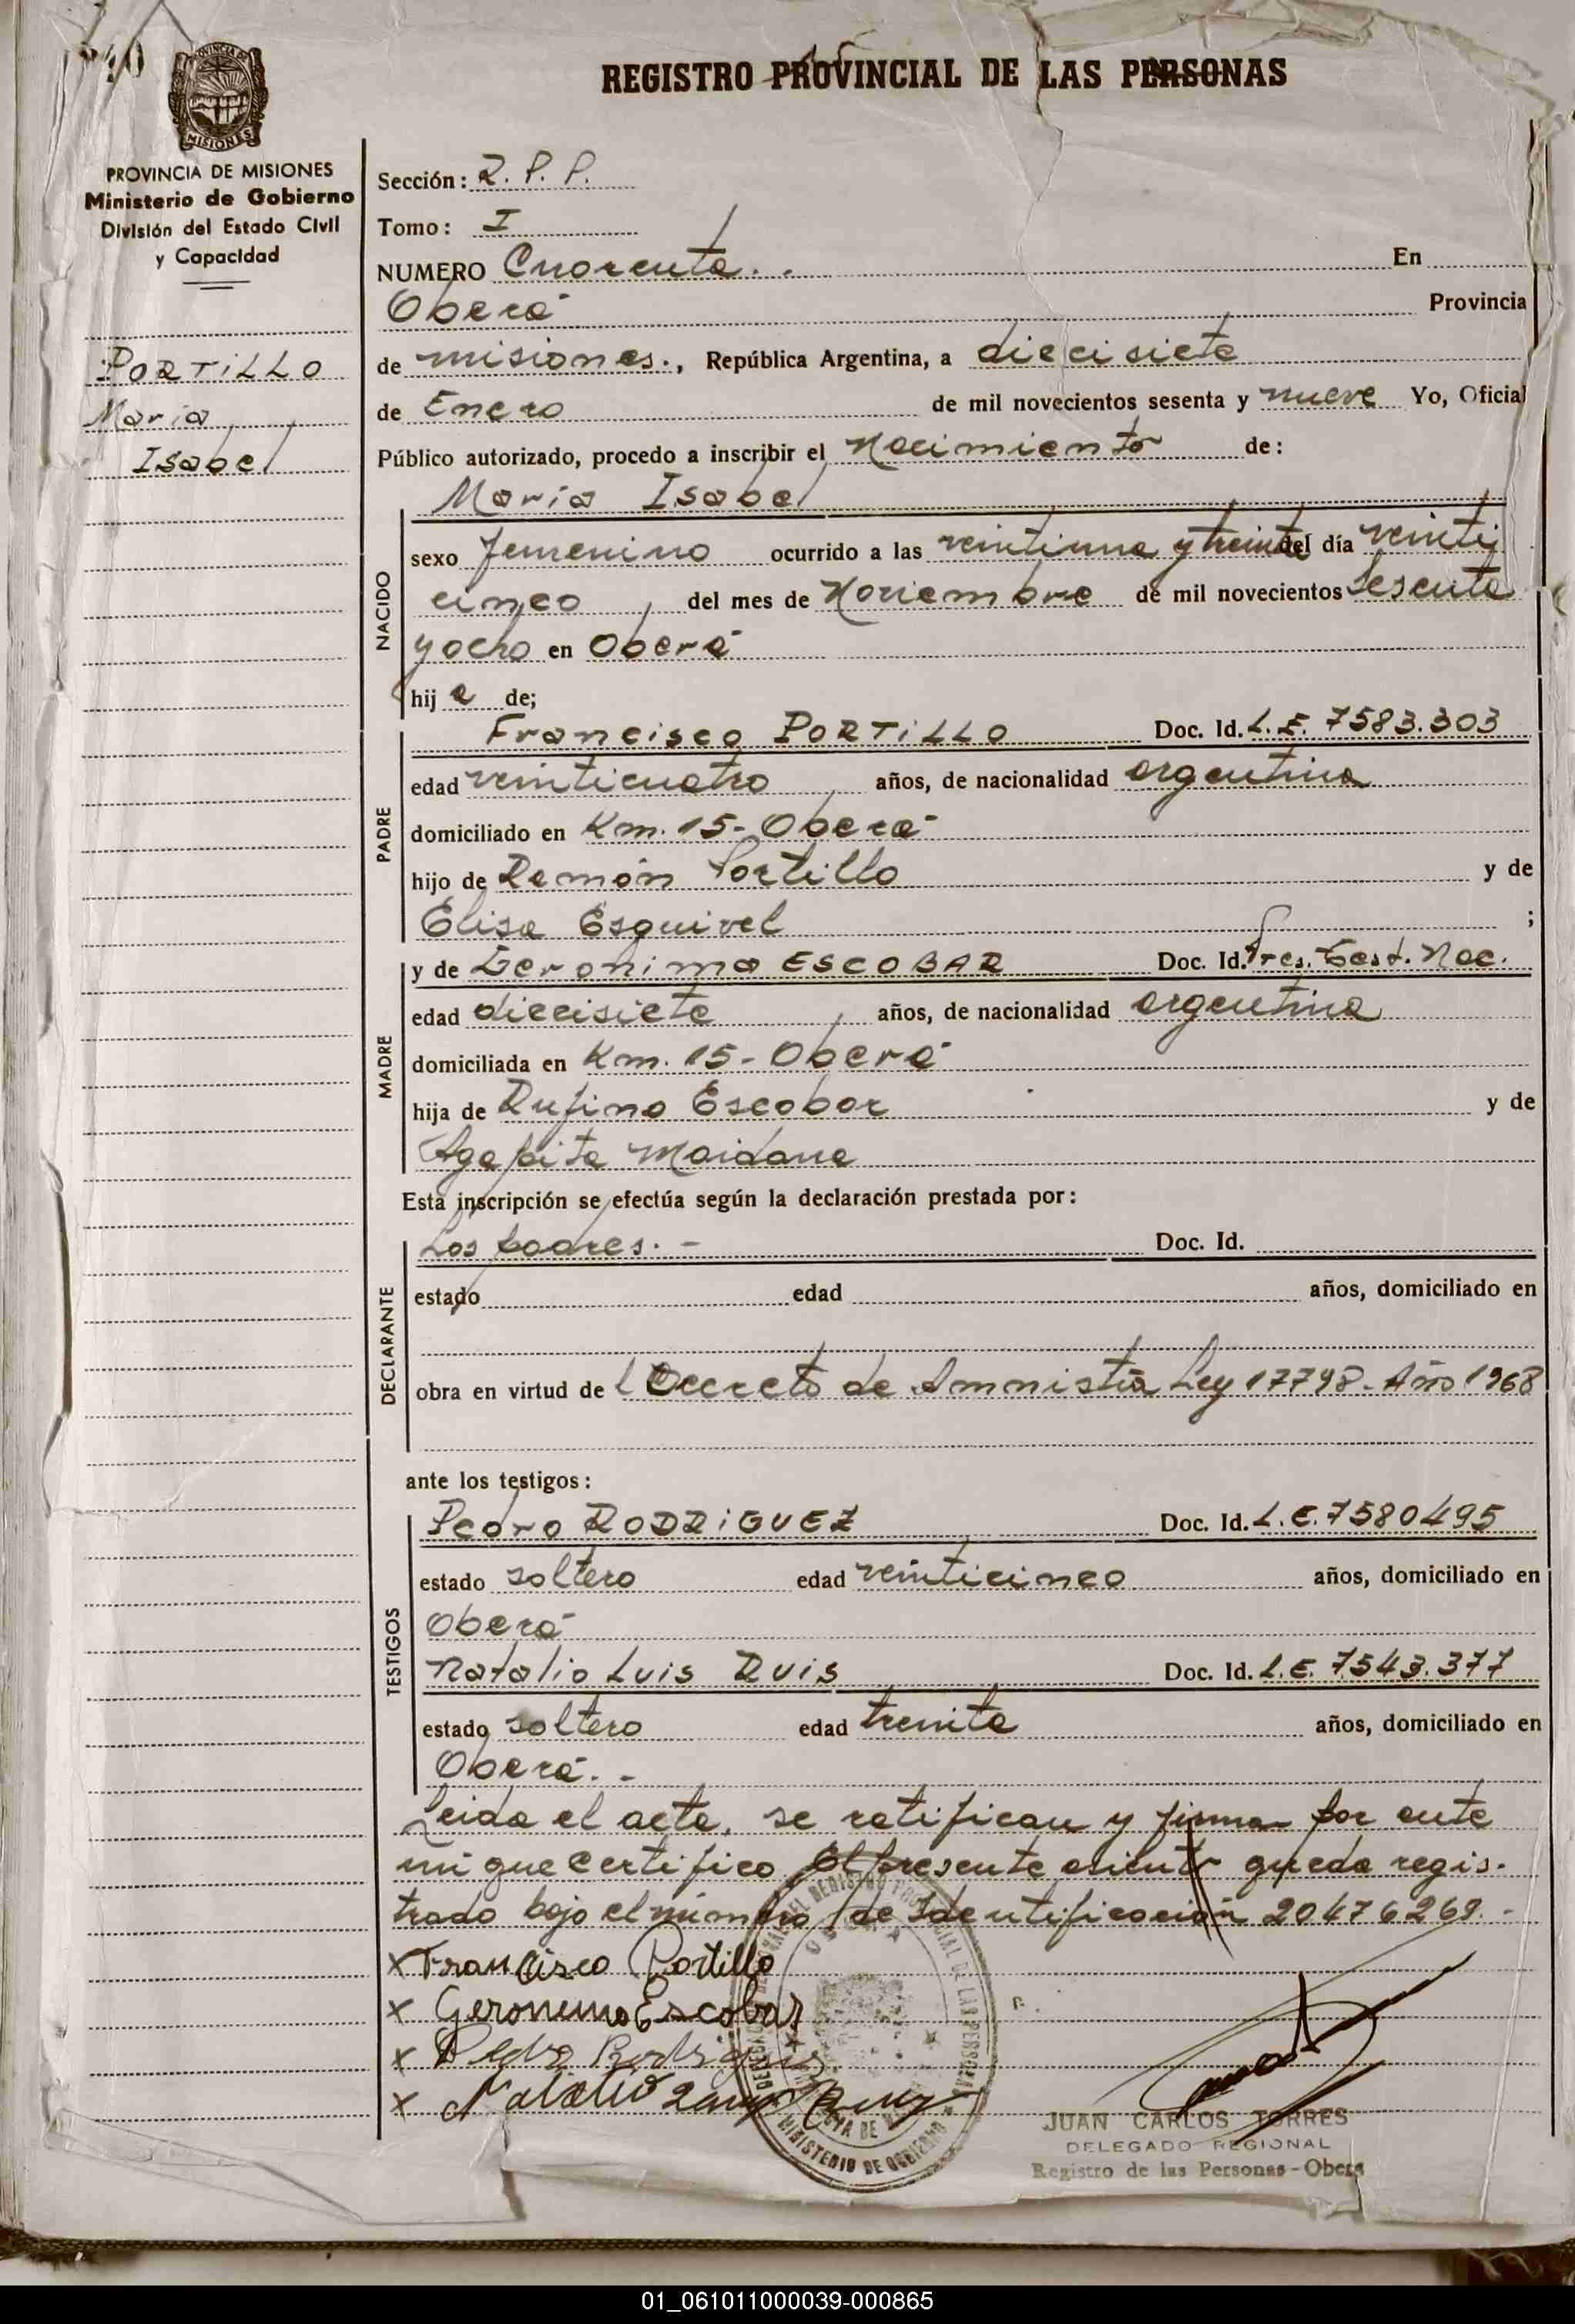 40
PROVINCIA DE MISIONES
Ministerio de Gobierno
División del Estado Civil
y Capacidad
PORTILLO
María
Isabel
REGISTRO PROVINCIAL DE LAS PERSONAS
Sección: R. P. P.
Tomo: I
NUMERO Cuarenta.. En
Oberá Provincia
de misiones., República Argentina, a diecisiete
de Enero de mil novecientos sesenta y nueve Yo, Oficial
Público autorizado, procedo a inscribir el Nacimiento de:
María Isabel
NACIDO
sexo femenino ocurrido a las veintiuna y treinta del día veinti
cinco del mes de Noviembre de mil novecientos Sesenta
y ocho en Oberá
hij a de;
PADRE
Francisco PORTILLO Doc. Id. L.E. 7583.303
edad veinticuatro años, de nacionalidad argentina
domiciliado en Km. 15- Oberá
hijo de Ramón Portillo y de
Elisa Esquivel ;
MADRE
y de Geronima ESCOBAR Doc. Id. Pres. Cert. Nac.
edad diecisiete años, de nacionalidad argentina
domiciliada en Km. 15- Oberá
hija de Rufino Escobar y de
Agapita Maidana
Esta inscripción se efectúa según la declaración prestada por:
DECLARANTE
Los padres. - Doc. Id.
estado edad años, domiciliado en
obra en virtud de l Decreto de Amnistía Ley 17798- Año 1968
ante los testigos:
TESTIGOS
Pedro RODRIGUEZ Doc. Id. L.E. 7580495
estado soltero edad veinticinco años, domiciliado en
Oberá
Natalio Luis RUIS Doc. Id. L.E. 7543.377
estado soltero edad treinta años, domiciliado en
Oberá. -
Leida el acta, se ratifican y firman por ante
mi que certifico. El presente asiento queda regis-
trado bajo el número de Identificación 20476269. -
x Francisco Portillo
x Geronima Escobar
x Pedro Rodriguez
x Natalio Luis Ruiz
JUAN CARLOS TORRES
DELEGADO REGIONAL
Registro de las Personas - Oberá
MINISTERIO DE GOBIERNO
01_061011000039-000865